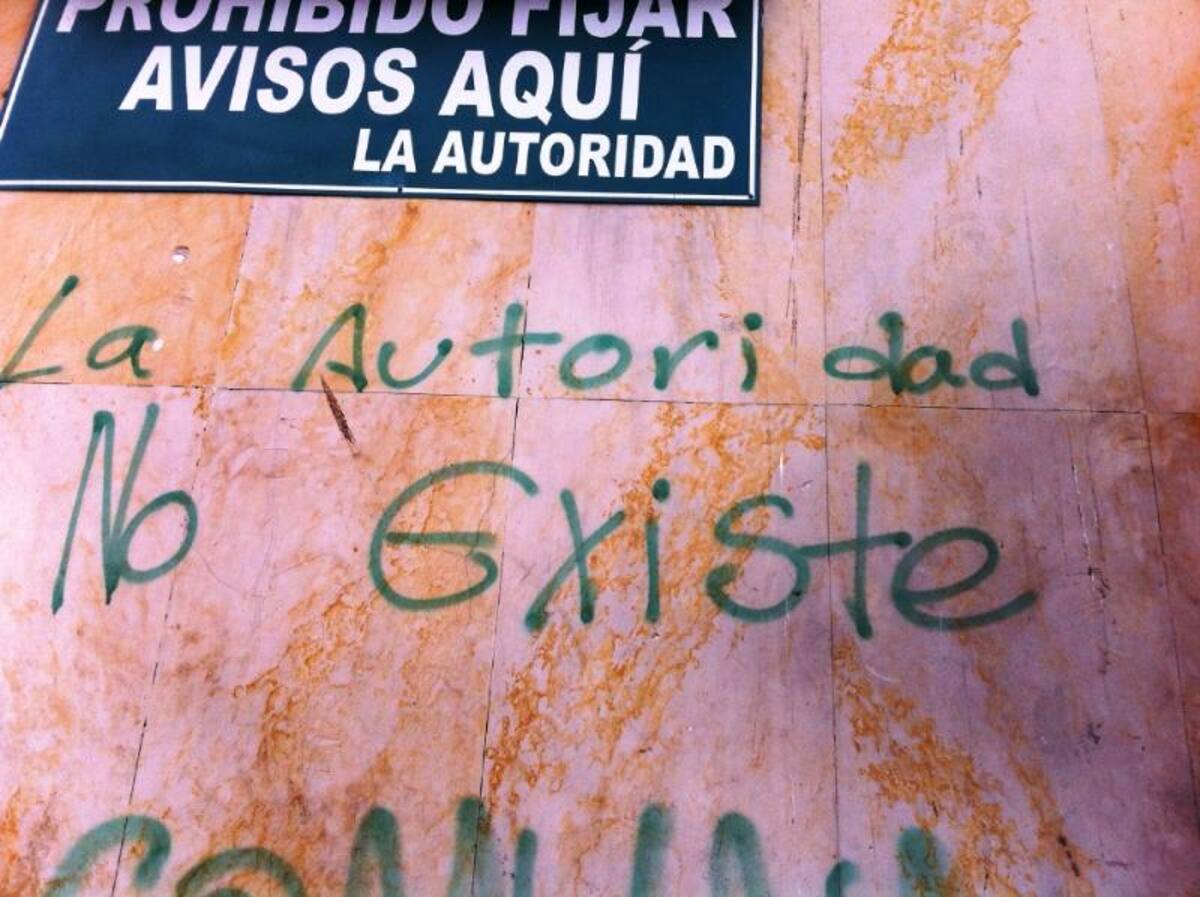 PROHIBIDO FIJAR
AVISOS AQUÍ
LA AUTORIDAD
La Autoridad
No Existe